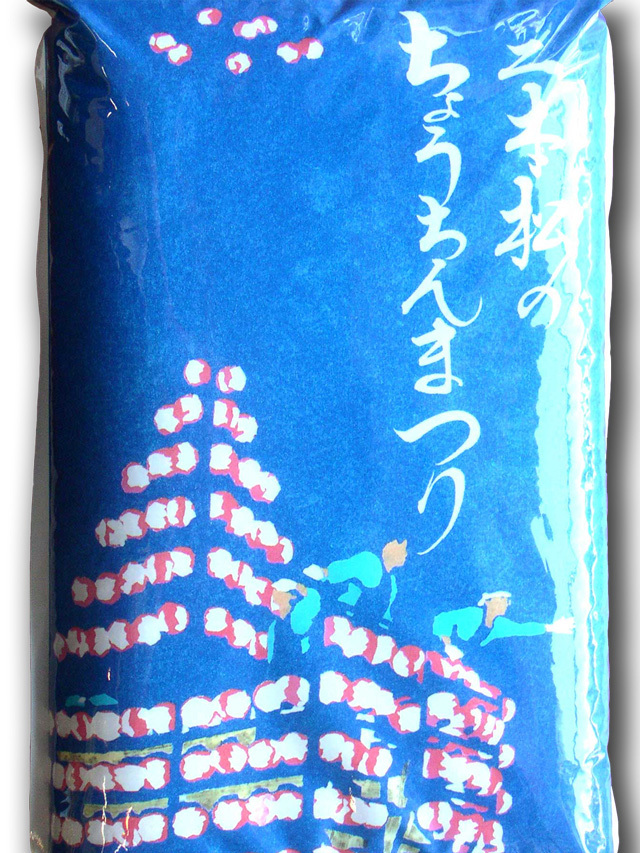 二本松の
ちょうちんまつり